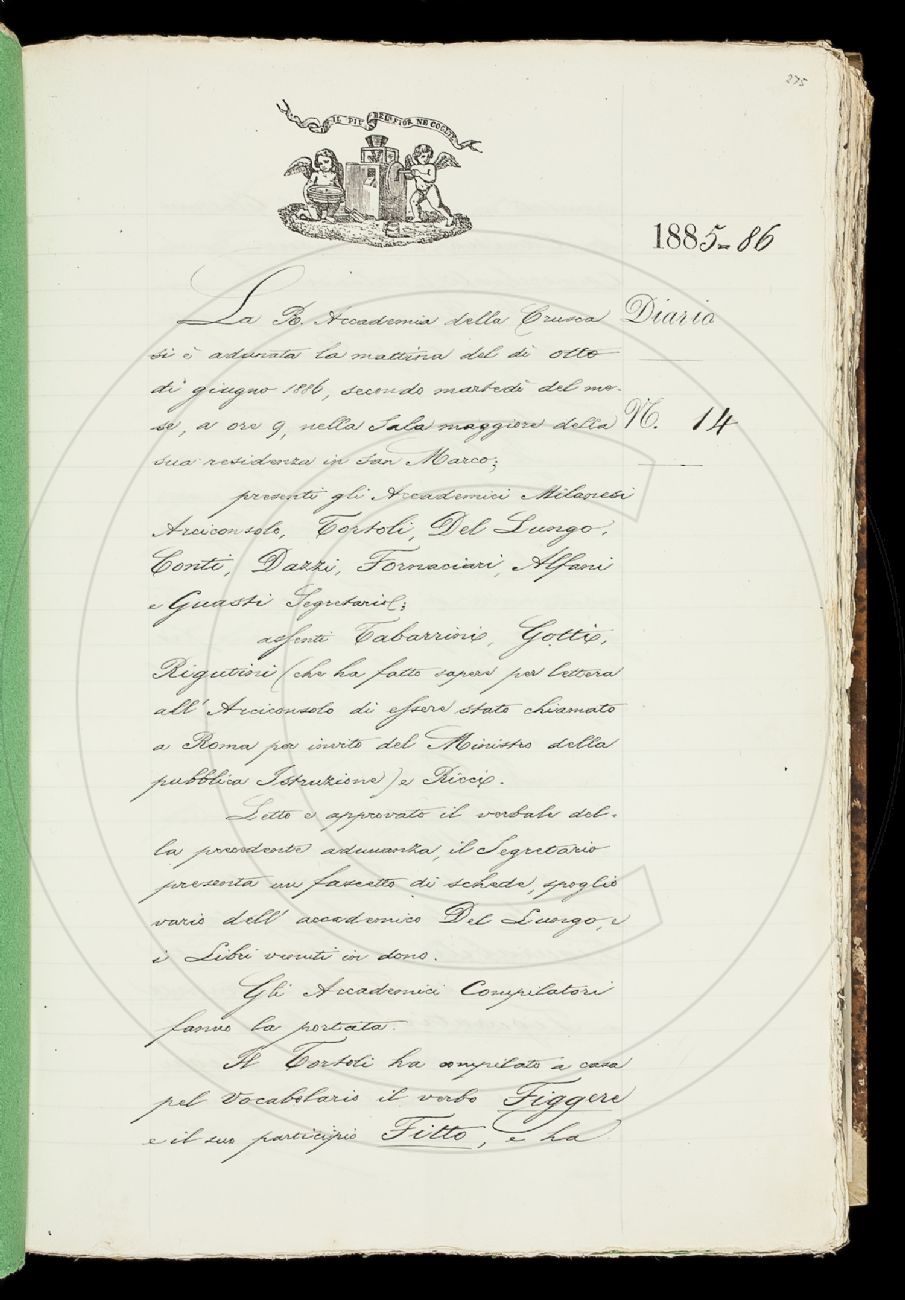 275
IL PIÙ BEL FIOR NE COGLIE
1885-86
La R. Accademia della Crusca
Diario
si è adunata la mattina del dì otto
di giugno 1886, secondo martedì del me-
se, a ore 9, nella Sala maggiore della
N. 14
sua residenza in San Marco;
presenti gli Accademici Milanesi
Arciconsolo, Tortoli, Del Lungo,
Conti, Dazzi, Fornaciari, Alfani
e Guasti Segretario;
assenti Tabarrini, Gotti,
Rigutini (che ha fatto sapere per lettera
all' Arciconsolo di essere stato chiamato
a Roma per invito del Ministro della
pubblica Istruzione) e Ricci.
Letto e approvato il verbale del-
la precedente adunanza, il Segretario
presenta un fascetto di schede, spoglio
vario dell' accademico Del Lungo, e
i Libri venuti in dono.
Gli Accademici Compilatori
fanno la portata.
Il Tortoli ha compilato a casa
pel Vocabolario il verbo Figgere
e il suo participio Fitto, e ha